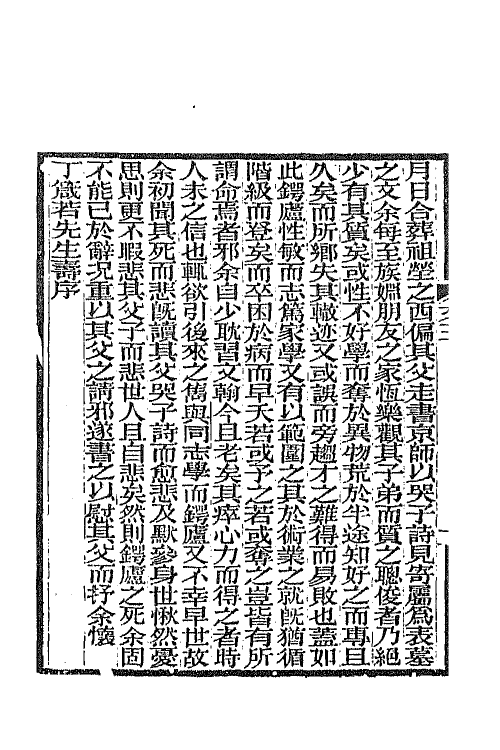 月日合葬祖塋之西偏其父走書京師以哭子詩見寄屬為表墓
之文余每至族姻朋友之家恆樂觀其子弟而質之聰俊者乃絕
少有其質矣或性不好學而奪於異物荒於半途知好之而專且
久矣而所鄉失其轍迹又或誤而旁趨才之難得而易敗也蓋如
此鍔廬性敏而志篤家學又有以範圍之其於術業之就旣猶循
階級而登矣而卒困於病而早夭若或予之若或奪之豈皆有所
謂命焉者邪余自少耽習文翰今且老矣其瘁心力而得之者時
人未之信也輒欲引後來之儁與同志學而鍔廬又不幸早世故
余初聞其死而悲旣讀其父哭子詩而愈悲及默參身世愀然憂
思則更不暇悲其父子而悲世人且自悲矣然則鍔廬之死余固
不能已於辭况重以其父之請邪遂書之以慰其父而抒余懷
丁徵若先生壽序